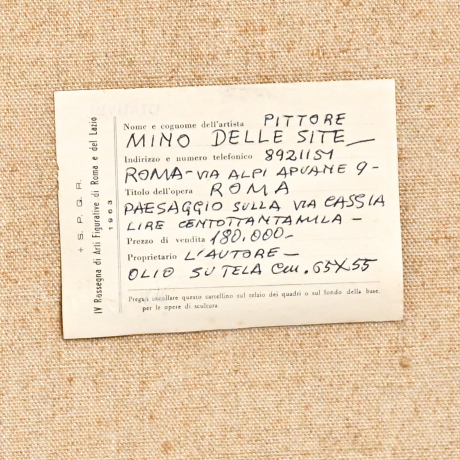 + S. P. Q. R.
IV Rassegna di Arti Figurative di Roma e del Lazio
1963
Nome e cognome dell'artista PITTORE
MINO DELLE SITE
Indirizzo e numero telefonico 8921151
ROMA - VIA ALPI APUANE 9 -
Titolo dell'opera ROMA
PAESAGGIO SULLA VIA CASSIA
LIRE CENTOTTANTAMILA -
Prezzo di vendita 180.000 -
Proprietario L'AUTORE -
OLIO SU TELA cm. 65X55
Pregasi incollare questo cartellino sul telaio dei quadri o sul fondo della base
per le opere di scultura.